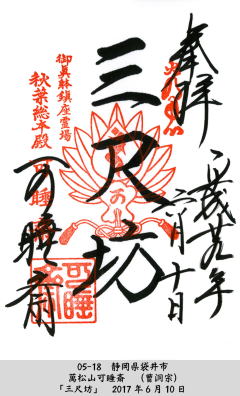 奉拝
平成廿九年
六月十日
三尺坊
御真躰鎮座霊場
秋葉総本殿
可睡斎
可睡斎
05-18 静岡県袋井市
萬松山可睡斎 (曹洞宗)
「三尺坊」 2017年6月10日